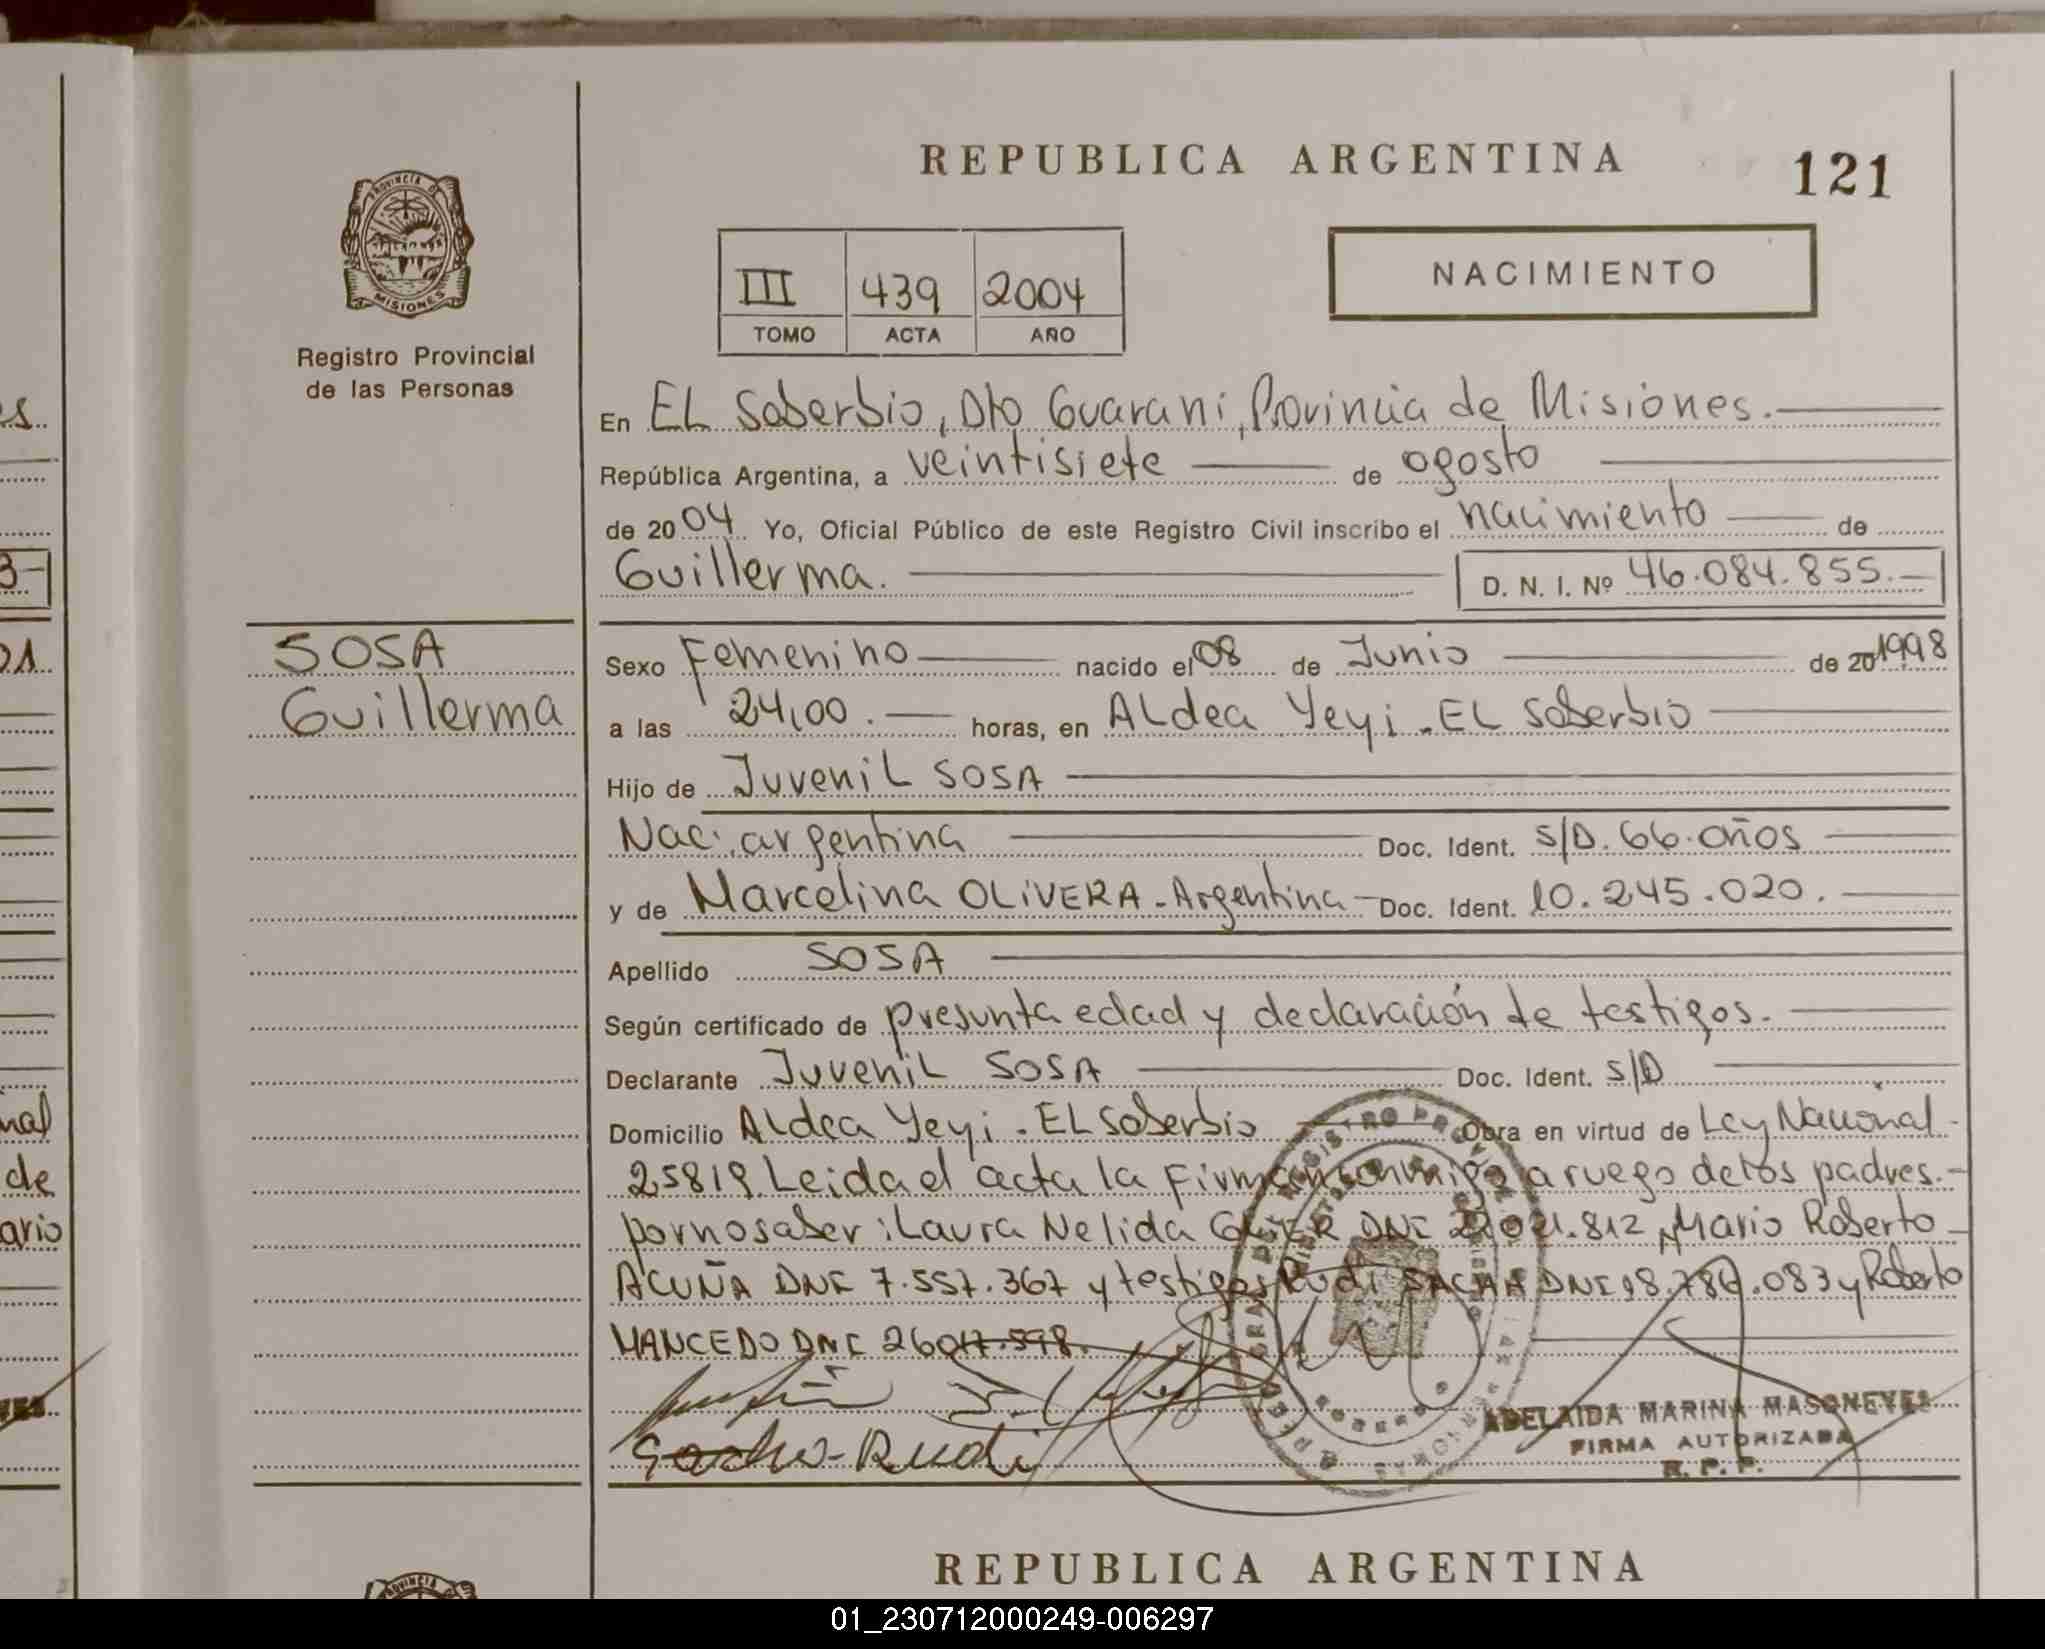 REPUBLICA ARGENTINA
121
PROVINCIA DE
MISIONES
Registro Provincial
de las Personas
III 439 2004
TOMO ACTA AÑO
NACIMIENTO
En EL Soberbio, Dto Guarani, Provincia de Misiones.
República Argentina, a veintisiete de agosto
de 2004 Yo, Oficial Público de este Registro Civil inscribo el nacimiento de
Guillerma.
D. N. I. Nº 46.084.855.
SOSA
Guillerma
Sexo Femenino nacido el 08 de Junio de 20 1998
a las 24,00. horas, en ALdea Yeyi. EL Soberbio
Hijo de JuveniL SOSA
Nac. argentina Doc. Ident. S/D. 66 años
y de Marcelina OLiVERA - Argentina Doc. Ident. 10.245.020.
Apellido SOSA
Según certificado de presunta edad y declaración de testigos.
Declarante JuveniL SOSA Doc. Ident. S/D
Domicilio ALdea Yeyi. EL Soberbio Obra en virtud de Ley Nacional
25819. Leida el acta la Firman conmigo a ruego de los padres.
por no saber: Laura Nelida DNI .812, Mario Roberto
ACUÑA DNI 7.557.367 y testigos Rudi DNI 18.786.083 y Roberto
DNI
Rudi
ADELAIDA MARINA MASONEYES
FIRMA AUTORIZADA
R. P. P.
REPUBLICA ARGENTINA
PROVINCIA DE
01_230712000249-006297